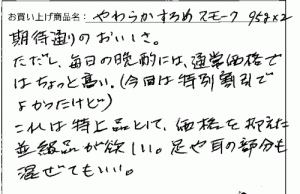 お買い上げ商品名：やわらかするめスモーク 95g×2
期待通りのおいしさ。
ただし、毎日の晩酌には、通常価格で
はちょっと高い。(今回は特別割引で
よかったけど)
これは特上品として、価格を抑えた
並級品が欲しい。足や耳の部分も
混ぜてもいい。